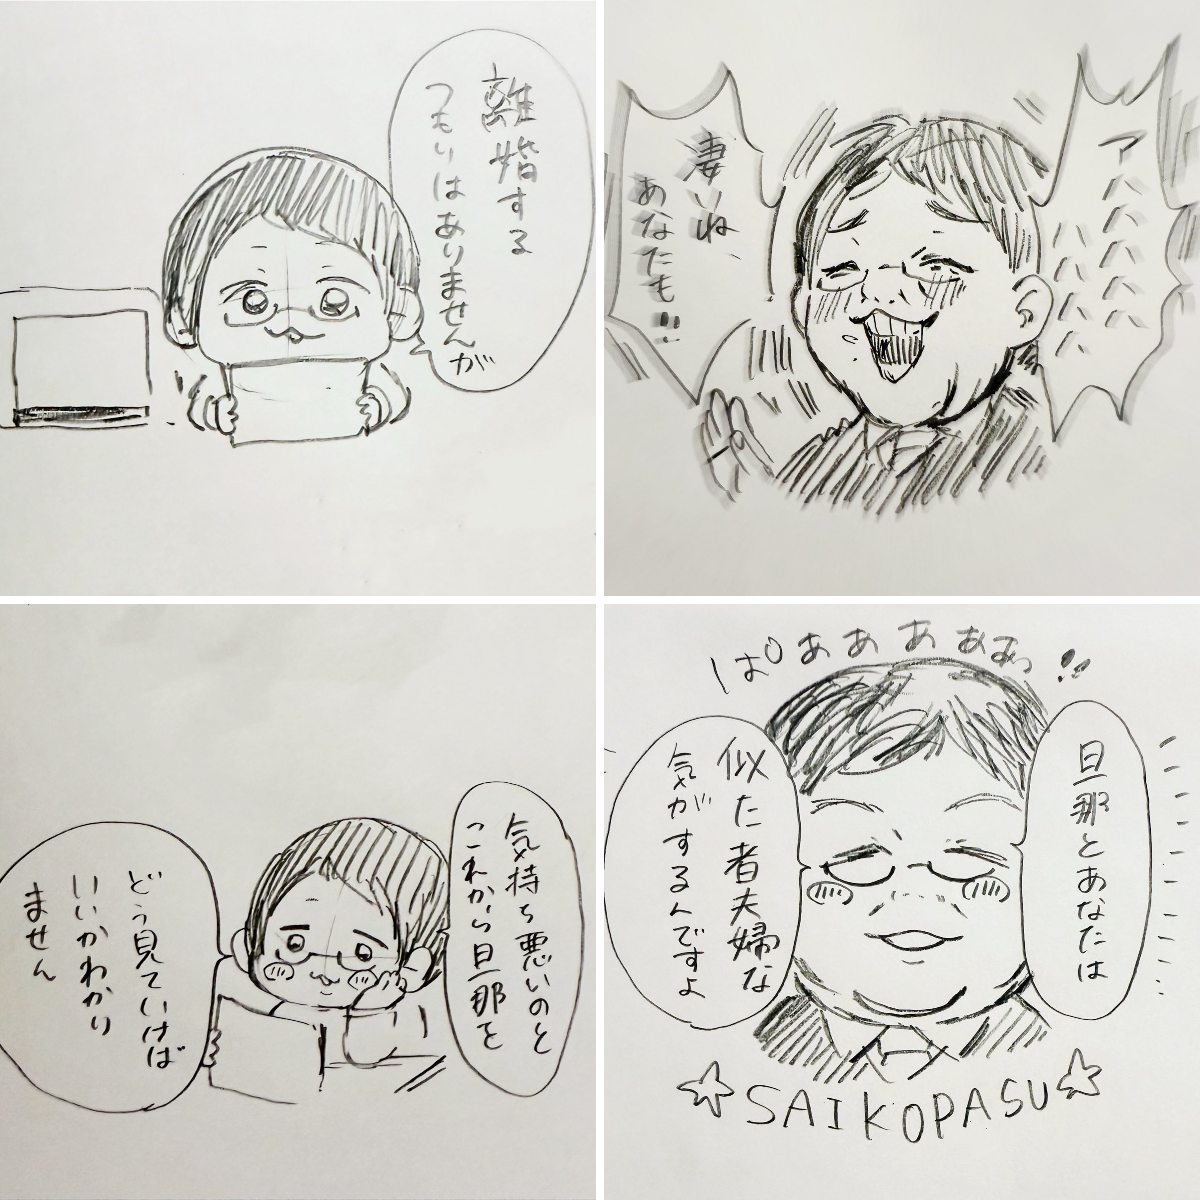 離婚する
つもりはありませんが
アハハハハ
ハハハハ
妻いね
あなたも!!
気持ち悪いのと
これから旦那を
どう見ていけば
いいかわかり
ません
ぱぁぁぁぁぁっ!!
旦那とあなたは
似た者夫婦な
気がするんですよ
☆SAIKOPASU☆